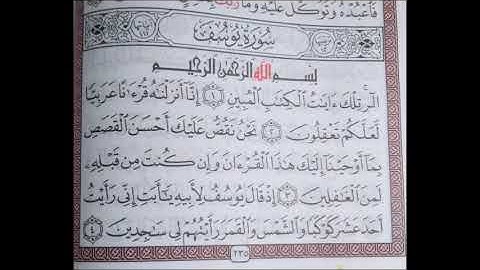 فَٱعۡبُدۡهُ وَتَوَكَّلۡ عَلَيۡهِ وَمَا رَبُّكَ
سُورَةُ يُوسُفَ
بِسۡمِ ٱللَّهِ ٱلرَّحۡمَٰنِ ٱلرَّحِيمِ
الٓرۚ تِلۡكَ ءَايَٰتُ ٱلۡكِتَٰبِ ٱلۡمُبِينِ ١ إِنَّآ أَنزَلۡنَٰهُ قُرۡءَٰنًا عَرَبِيّٗا
لَّعَلَّكُمۡ تَعۡقِلُونَ ٢ نَحۡنُ نَقُصُّ عَلَيۡكَ أَحۡسَنَ ٱلۡقَصَصِ
بِمَآ أَوۡحَيۡنَآ إِلَيۡكَ هَٰذَا ٱلۡقُرۡءَانَ وَإِن كُنتَ مِن قَبۡلِهِۦ
لَمِنَ ٱلۡغَٰفِلِينَ ٣ إِذۡ قَالَ يُوسُفُ لِأَبِيهِ يَٰٓأَبَتِ إِنِّي رَأَيۡتُ
أَحَدَ عَشَرَ كَوۡكَبٗا وَٱلشَّمۡسَ وَٱلۡقَمَرَ رَأَيۡتُهُمۡ لِي سَٰجِدِينَ ٤
٢٣٥